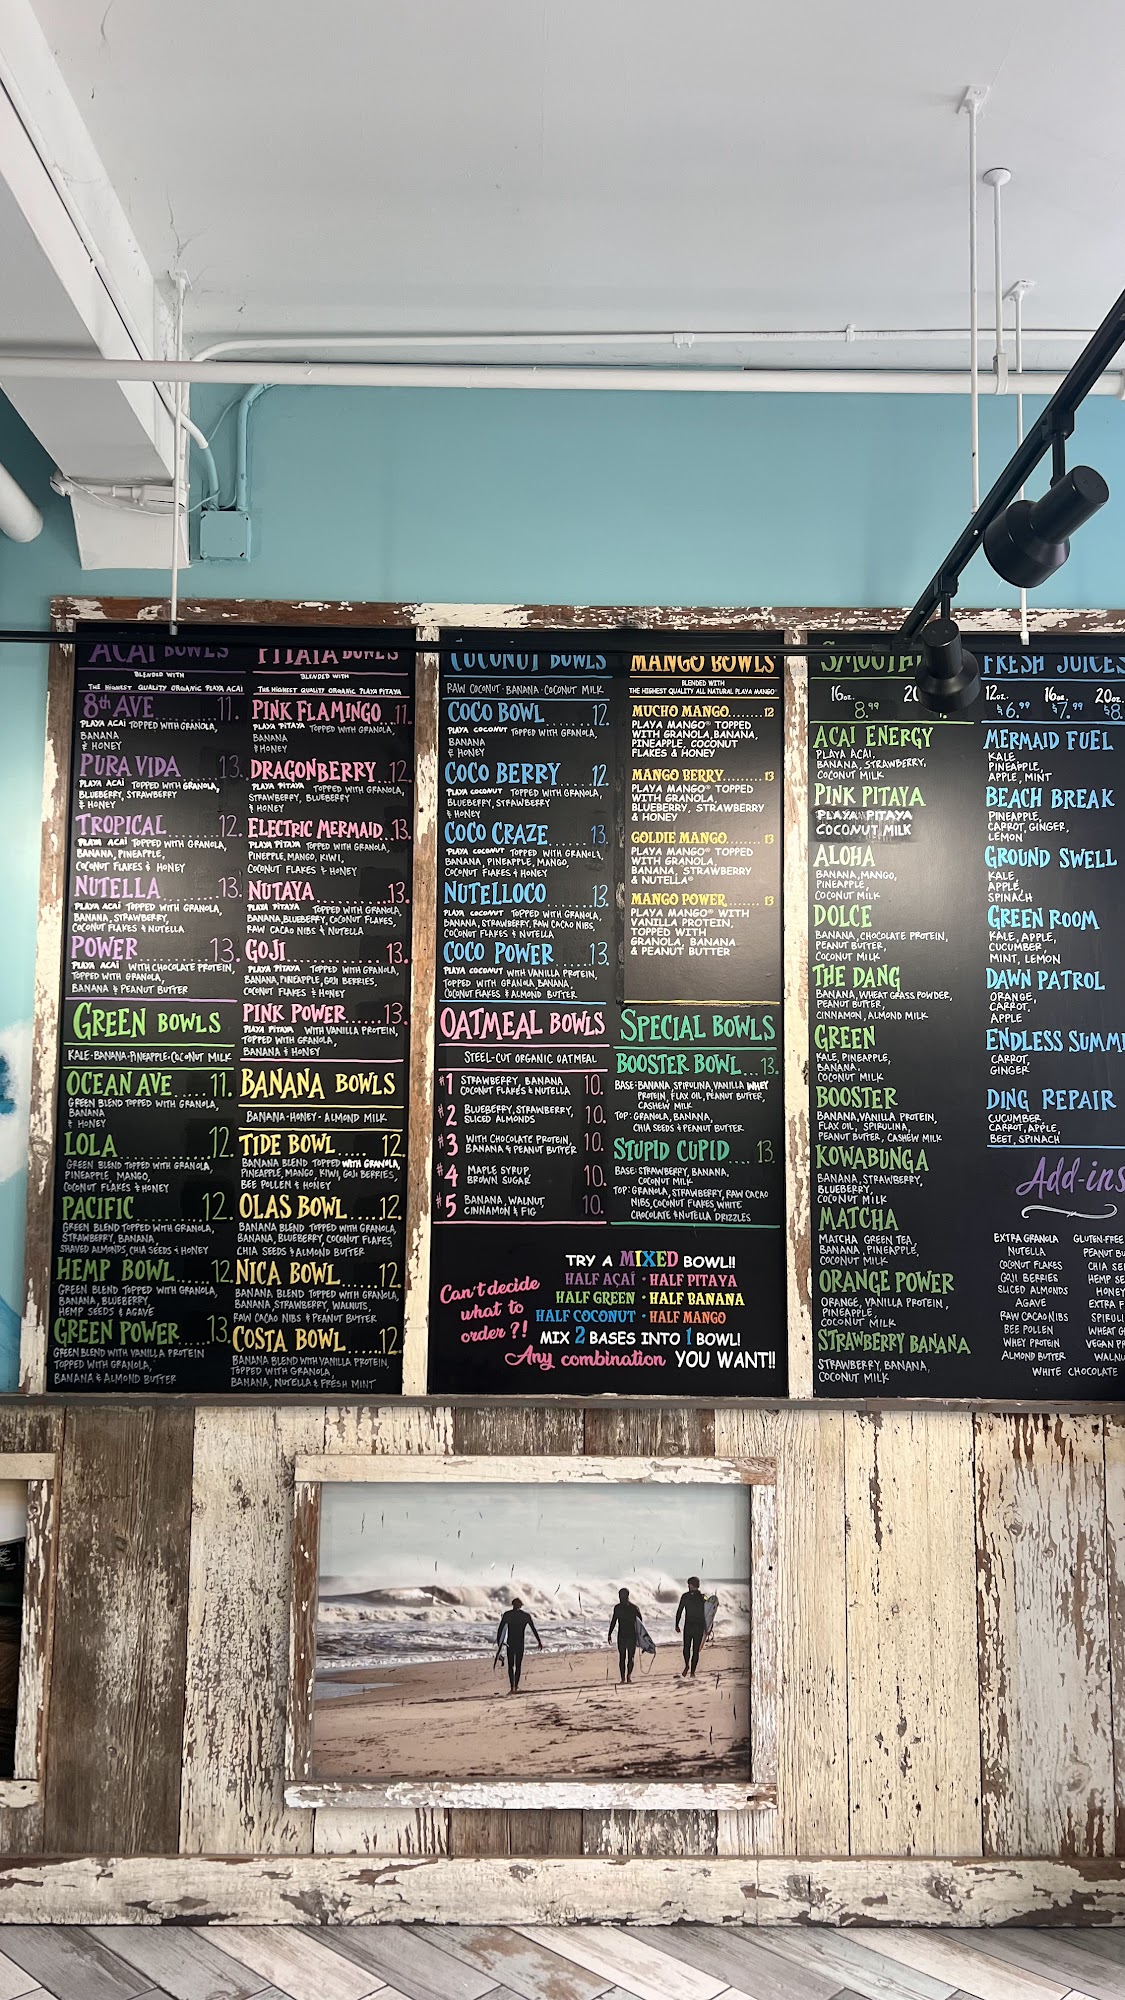 ACAI BOWLS
BLENDED WITH
THE HIGHEST QUALITY ORGANIC PLAYA ACAI
8th AVE 11.
PLAYA ACAI TOPPED WITH GRANOLA,
BANANA
& HONEY
PURA VIDA 13.
PLAYA ACAI TOPPED WITH GRANOLA,
BLUEBERRY, STRAWBERRY
& HONEY
TROPICAL 12.
PLAYA ACAI TOPPED WITH GRANOLA,
BANANA, PINEAPPLE,
COCONUT FLAKES & HONEY
NUTELLA 13.
PLAYA ACAI TOPPED WITH GRANOLA,
BANANA, STRAWBERRY,
COCONUT FLAKES & NUTELLA
POWER 13.
PLAYA ACAI WITH CHOCOLATE PROTEIN,
TOPPED WITH GRANOLA,
BANANA & PEANUT BUTTER
GREEN BOWLS
KALE·BANANA·PINEAPPLE·COCONUT MILK
OCEAN AVE ..... 11.
GREEN BLEND TOPPED WITH GRANOLA,
BANANA
& HONEY
LOLA 12.
GREEN BLEND TOPPED WITH GRANOLA,
PINEAPPLE, MANGO,
COCONUT FLAKES & HONEY
PACIFIC ....... 12.
GREEN BLEND TOPPED WITH GRANOLA,
STRAWBERRY, BANANA,
SHAVED ALMONDS, CHIA SEEDS & HONEY
HEMP BOWL ..... 12.
GREEN BLEND TOPPED WITH GRANOLA,
BANANA, BLUEBERRY,
HEMP SEEDS & AGAVE
GREEN POWER 13.
GREEN BLEND WITH VANILLA PROTEIN
TOPPED WITH GRANOLA,
BANANA & ALMOND BUTTER
PITAIA BOWLS
BLENDED WITH
THE HIGHEST QUALITY ORGANIC PLAYA PITAYA
PINK FLAMINGO 11.
PLAYA PITAYA TOPPED WITH GRANOLA,
BANANA
& HONEY
DRAGONBERRY 12.
PLAYA PITAYA TOPPED WITH GRANOLA,
STRAWBERRY, BLUEBERRY
& HONEY
ELECTRIC MERMAID 13.
PLAYA PITAYA TOPPED WITH GRANOLA,
PINEPPLE, MANGO, KIWI,
COCONUT FLAKES & HONEY
NUTAYA 13.
PLAYA PITAYA TOPPED WITH GRANOLA,
BANANA, BLUEBERRY, COCONUT FLAKES,
RAW CACAO NIBS & NUTELLA
GOJI 13.
PLAYA PITAYA TOPPED WITH GRANOLA,
BANANA, PINEAPPLE, GOJI BERRIES,
COCONUT FLAKES & HONEY
PINK POWER 13.
PLAYA PITAYA WITH VANILLA PROTEIN,
TOPPED WITH GRANOLA,
BANANA & HONEY
BANANA BOWLS
BANANA·HONEY·ALMOND MILK
TIDE BOWL 12.
BANANA BLEND TOPPED WITH GRANOLA,
PINEAPPLE, MANGO, KIWI, GOJI BERRIES,
BEE POLLEN & HONEY
OLAS BOWL 12.
BANANA BLEND TOPPED WITH GRANOLA,
BANANA, BLUEBERRY, COCONUT FLAKES,
CHIA SEEDS & ALMOND BUTTER
NICA BOWL 12.
BANANA BLEND TOPPED WITH GRANOLA,
BANANA, STRAWBERRY, WALNUTS,
RAW CACAO NIBS & PEANUT BUTTER
COSTA BOWL 12.
BANANA BLEND WITH VANILLA PROTEIN,
TOPPED WITH GRANOLA,
BANANA, NUTELLA & FRESH MINT
COCONUT BOWLS
RAW COCONUT·BANANA·COCONUT MILK
COCO BOWL 12.
PLAYA COCONUT TOPPED WITH GRANOLA,
BANANA
& HONEY
COCO BERRY 12.
PLAYA COCONUT TOPPED WITH GRANOLA,
BLUEBERRY, STRAWBERRY
& HONEY
COCO CRAZE 13.
PLAYA COCONUT TOPPED WITH GRANOLA,
BANANA, PINEAPPLE, MANGO,
COCONUT FLAKES & HONEY
NUTELLOCO 13.
PLAYA COCONUT TOPPED WITH GRANOLA,
BANANA, STRAWBERRY, RAW CACAO NIBS,
COCONUT FLAKES & NUTELLA
COCO POWER 13.
PLAYA COCONUT WITH VANILLA PROTEIN,
TOPPED WITH GRANOLA, BANANA,
COCONUT FLAKES & ALMOND BUTTER
OATMEAL BOWLS
STEEL-CUT ORGANIC OATMEAL
#1 STRAWBERRY, BANANA 10.
COCONUT FLAKES & NUTELLA
#2 BLUEBERRY, STRAWBERRY, 10.
SLICED ALMONDS
#3 WITH CHOCOLATE PROTEIN, 10.
BANANA & PEANUT BUTTER
#4 MAPLE SYRUP, 10.
BROWN SUGAR
#5 BANANA, WALNUT 10.
CINNAMON & FIG
MANGO BOWLS
BLENDED WITH
THE HIGHEST QUALITY ALL NATURAL PLAYA MANGO
MUCHO MANGO....... 12
PLAYA MANGO® TOPPED
WITH GRANOLA, BANANA,
PINEAPPLE, COCONUT
FLAKES & HONEY
MANGO BERRY........ 13
PLAYA MANGO® TOPPED
WITH GRANOLA,
BLUEBERRY, STRAWBERRY
& HONEY
GOLDIE MANGO....... 13
PLAYA MANGO® TOPPED
WITH GRANOLA,
BANANA, STRAWBERRY
& NUTELLA®
MANGO POWER........ 13
PLAYA MANGO® WITH
VANILLA PROTEIN,
TOPPED WITH
GRANOLA, BANANA
& PEANUT BUTTER
SPECIAL BOWLS
BOOSTER BOWL... 13.
BASE: BANANA, SPIRULINA, VANILLA WHEY
PROTEIN, FLAX OIL, PEANUT BUTTER,
CASHEW MILK
TOP: GRANOLA, BANANA,
CHIA SEEDS & PEANUT BUTTER
STUPID CUPID 13.
BASE: STRAWBERRY, BANANA,
COCONUT MILK
TOP: GRANOLA, STRAWBERRY, RAW CACAO
NIBS, COCONUT FLAKES, WHITE
CHOCOLATE & NUTELLA DRIZZLES
Can't decide
what to
order ?!
TRY A MIXED BOWL!!
HALF AÇAÍ · HALF PITAYA
HALF GREEN · HALF BANANA
HALF COCONUT · HALF MANGO
MIX 2 BASES INTO 1 BOWL!
Any combination YOU WANT!!
SMOOTHI
16oz. 20
8.99
ACAI ENERGY
PLAYA ACAI,
BANANA, STRAWBERRY,
COCONUT MILK
PINK PITAYA
PLAYA PITAYA
COCONUT MILK
ALOHA
BANANA, MANGO,
PINEAPPLE,
COCONUT MILK
DOLCE
BANANA, CHOCOLATE PROTEIN,
PEANUT BUTTER,
COCONUT MILK
THE DANG
BANANA, WHEAT GRASS POWDER,
PEANUT BUTTER,
CINNAMON, ALMOND MILK
GREEN
KALE, PINEAPPLE,
BANANA,
COCONUT MILK
BOOSTER
BANANA, VANILLA PROTEIN,
FLAX OIL, SPIRULINA,
PEANUT BUTTER, CASHEW MILK
KOWABUNGA
BANANA, STRAWBERRY,
BLUEBERRY,
COCONUT MILK
MATCHA
MATCHA GREEN TEA,
BANANA, PINEAPPLE,
COCONUT MILK
ORANGE POWER
ORANGE, VANILLA PROTEIN,
PINEAPPLE,
COCONUT MILK
STRAWBERRY BANANA
STRAWBERRY, BANANA,
COCONUT MILK
FRESH JUICES
12oz. 16oz. 20oz.
$6.99 $7.99 $8.
MERMAID FUEL
KALE
PINEAPPLE,
APPLE, MINT
BEACH BREAK
PINEAPPLE,
CARROT, GINGER,
LEMON
GROUND SWELL
KALE,
APPLE,
SPINACH
GREEN ROOM
KALE, APPLE,
CUCUMBER,
MINT, LEMON
DAWN PATROL
ORANGE,
CARROT,
APPLE
ENDLESS SUMM
CARROT,
GINGER
DING REPAIR
CUCUMBER
CARROT, APPLE,
BEET, SPINACH
Add-ins
EXTRA GRANOLA
NUTELLA
COCONUT FLAKES
GOJI BERRIES
SLICED ALMONDS
AGAVE
RAW CACAO NIBS
BEE POLLEN
WHEY PROTEIN
ALMOND BUTTER
GLUTEN-FREE
PEANUT BU
CHIA SEE
HEMP SE
HONEY
EXTRA F
SPIRULI
WHEAT G
VEGAN PR
WALNU
WHITE CHOCOLATE